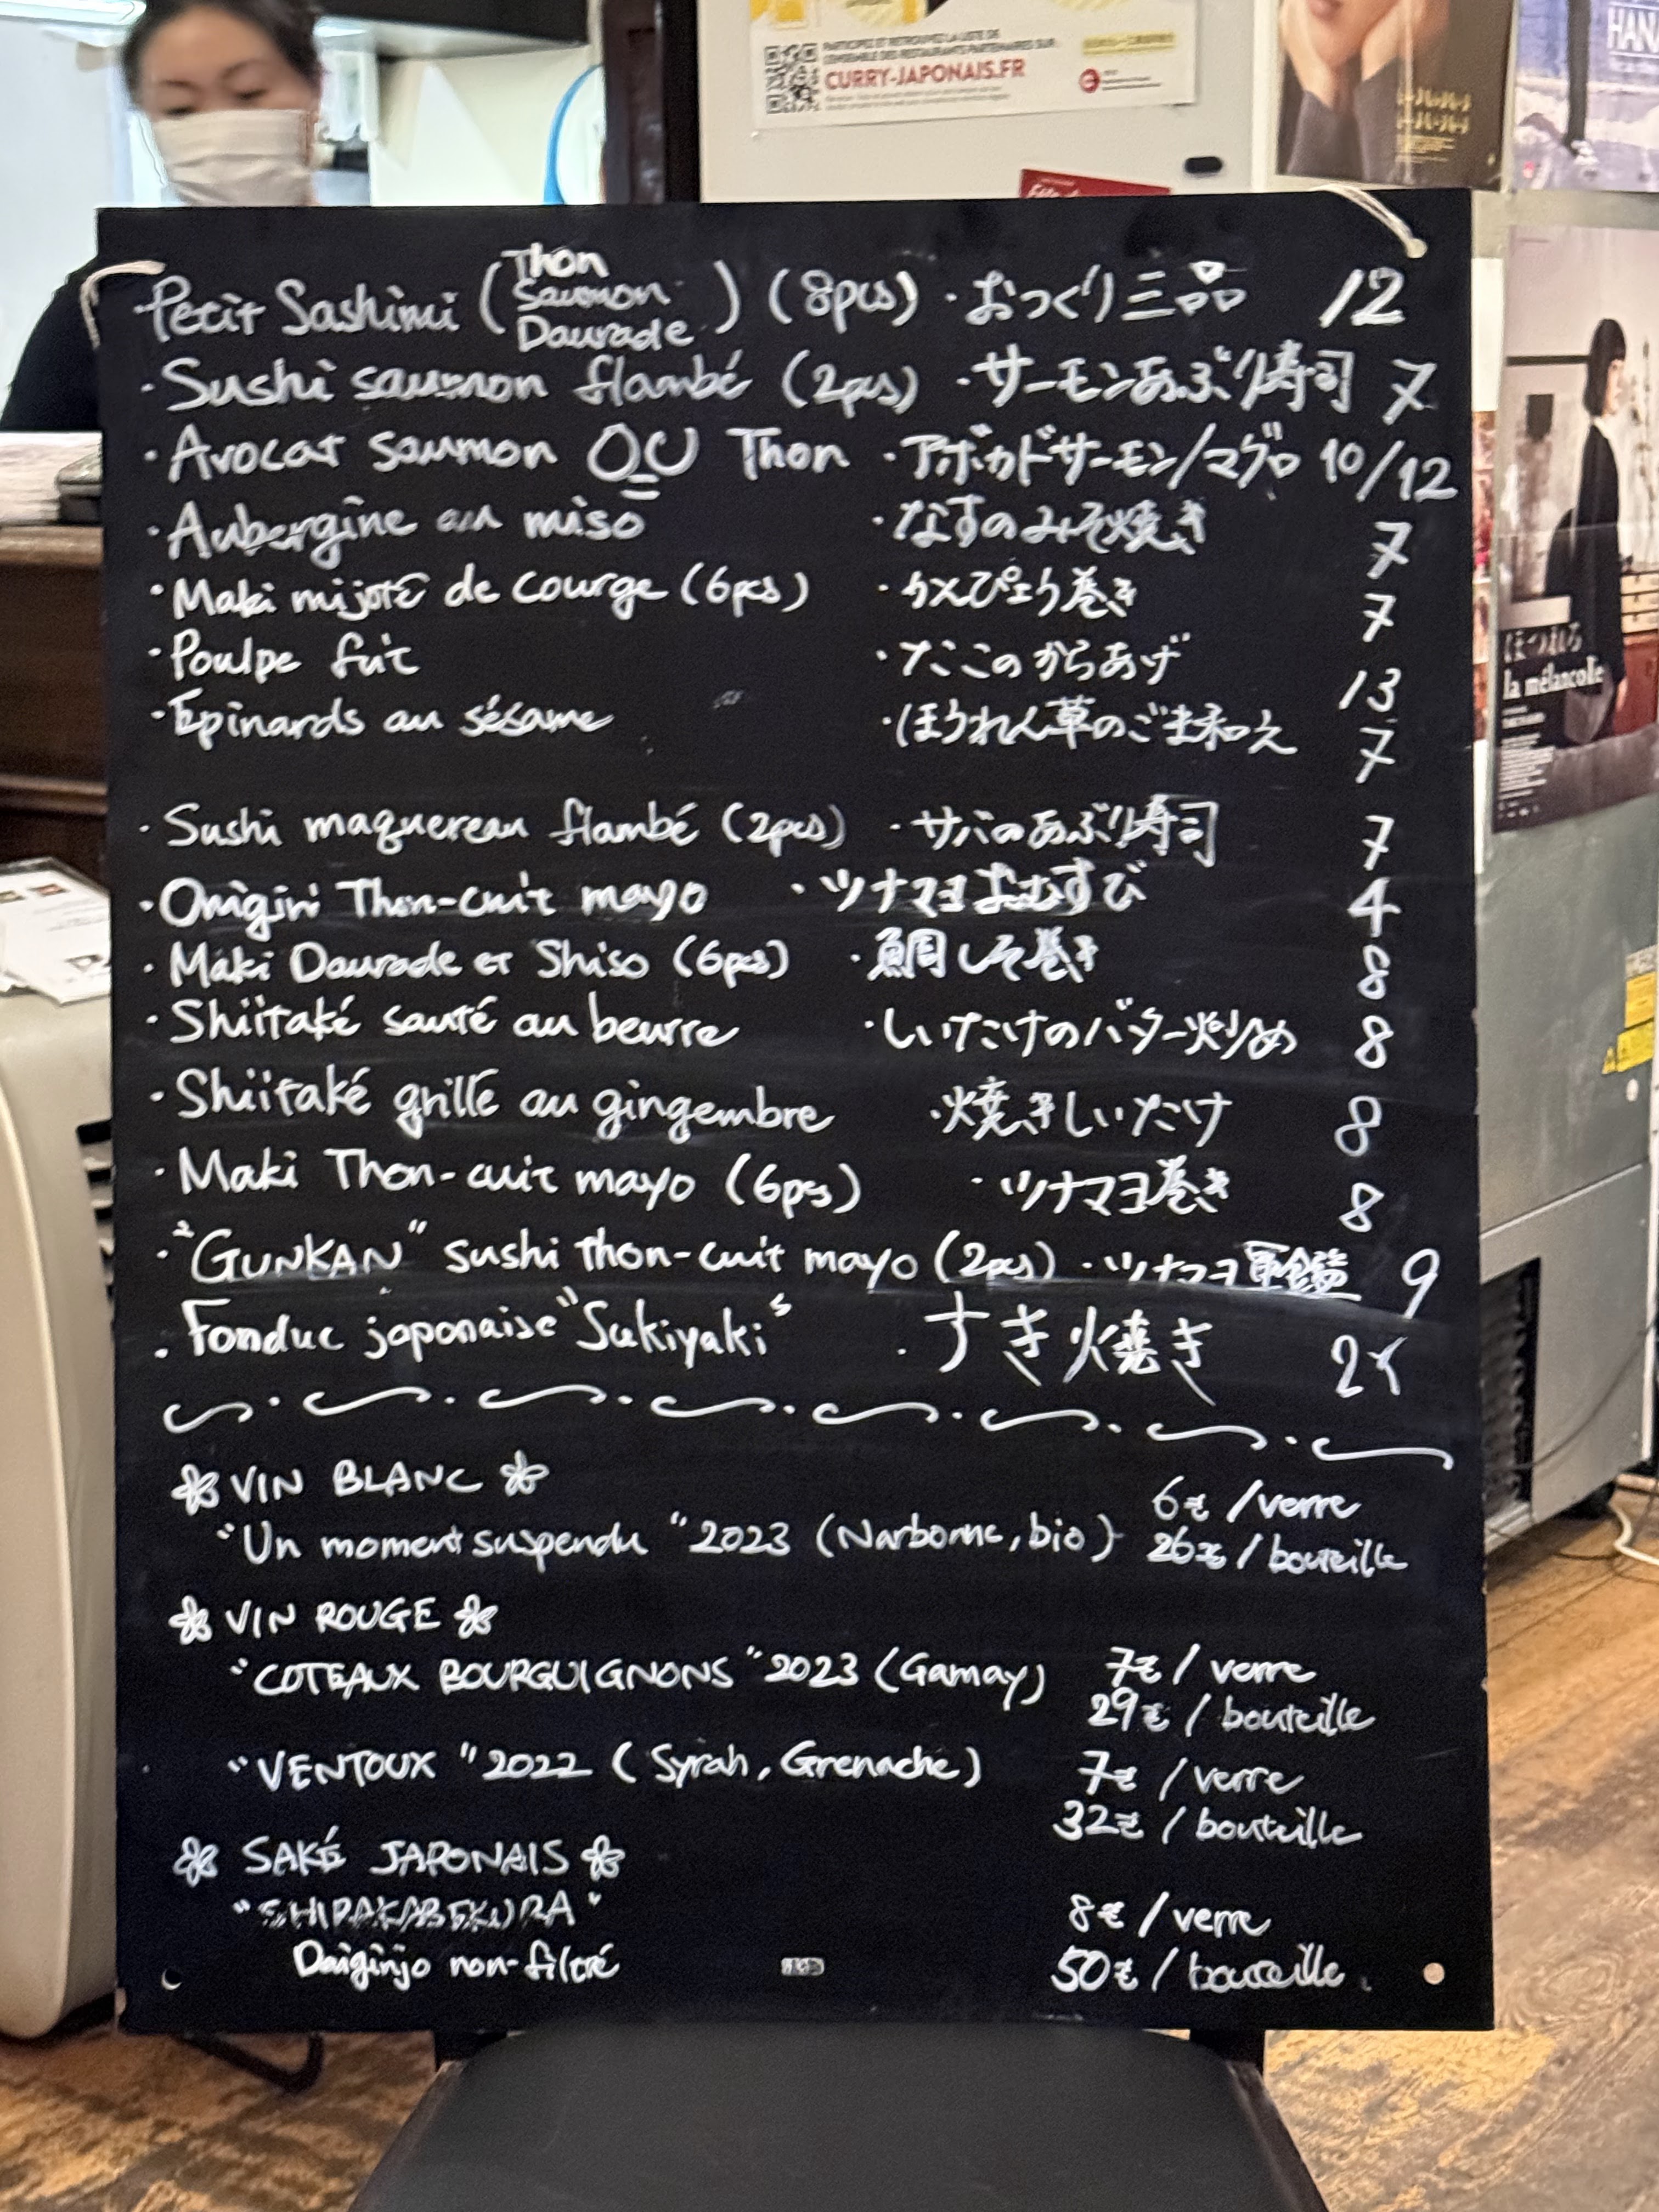 PARTICIPEZ ET RETROUVEZ LA LISTE DE
L'ENSEMBLE DES RESTAURANTS PARTENAIRES SUR :
CURRY-JAPONAIS.FR
HANA
・Petit Sashimi (Thon Saumon Daurade) (8pcs) ・おつくり三品 12
・Sushi saumon flambé (2pcs) ・サーモンあぶり寿司 7
・Avocat saumon OU Thon ・アボカドサーモン/マグロ 10/12
・Aubergine au miso ・なすのみそ焼き 7
・Maki mijoté de courge (6pcs) ・かんぴょう巻き 7
・Poulpe frit ・たこのからあげ 13
・Epinards au sésame ・ほうれん草のごま和え 7
・Sushi maquereau flambé (2pcs) ・サバのあぶり寿司 7
・Onigiri Thon-cuit mayo ・ツナマヨおむすび 4
・Maki Daurade et Shiso (6pcs) ・鯛しそ巻き 8
・Shiitaké sauté au beurre ・しいたけのバター炒め 8
・Shiitaké grillé au gingembre ・焼きしいたけ 8
・Maki Thon-cuit mayo (6pcs) ・ツナマヨ巻き 8
・"GUNKAN" sushi thon-cuit mayo (2pcs) ・ツナマヨ軍艦 9
・Fondue japonaise "Sukiyaki" ・すき焼き
VIN BLANC
6€ /verre
"Un moment suspendu" 2023 (Narbonne, bio) 26€ / bouteille
VIN ROUGE
"COTEAUX BOURGUIGNONS" 2023 (Gamay) 7€ / verre
29€ / bouteille
"VENTOUX" 2022 (Syrah, Grenache) 7€ / verre
32€ / bouteille
SAKÉ JAPONAIS
"SHIRAKABEKURA" 8€ / verre
Daiginjo non-filtré 50€ / bouteille
ほつれる
la mélancolie